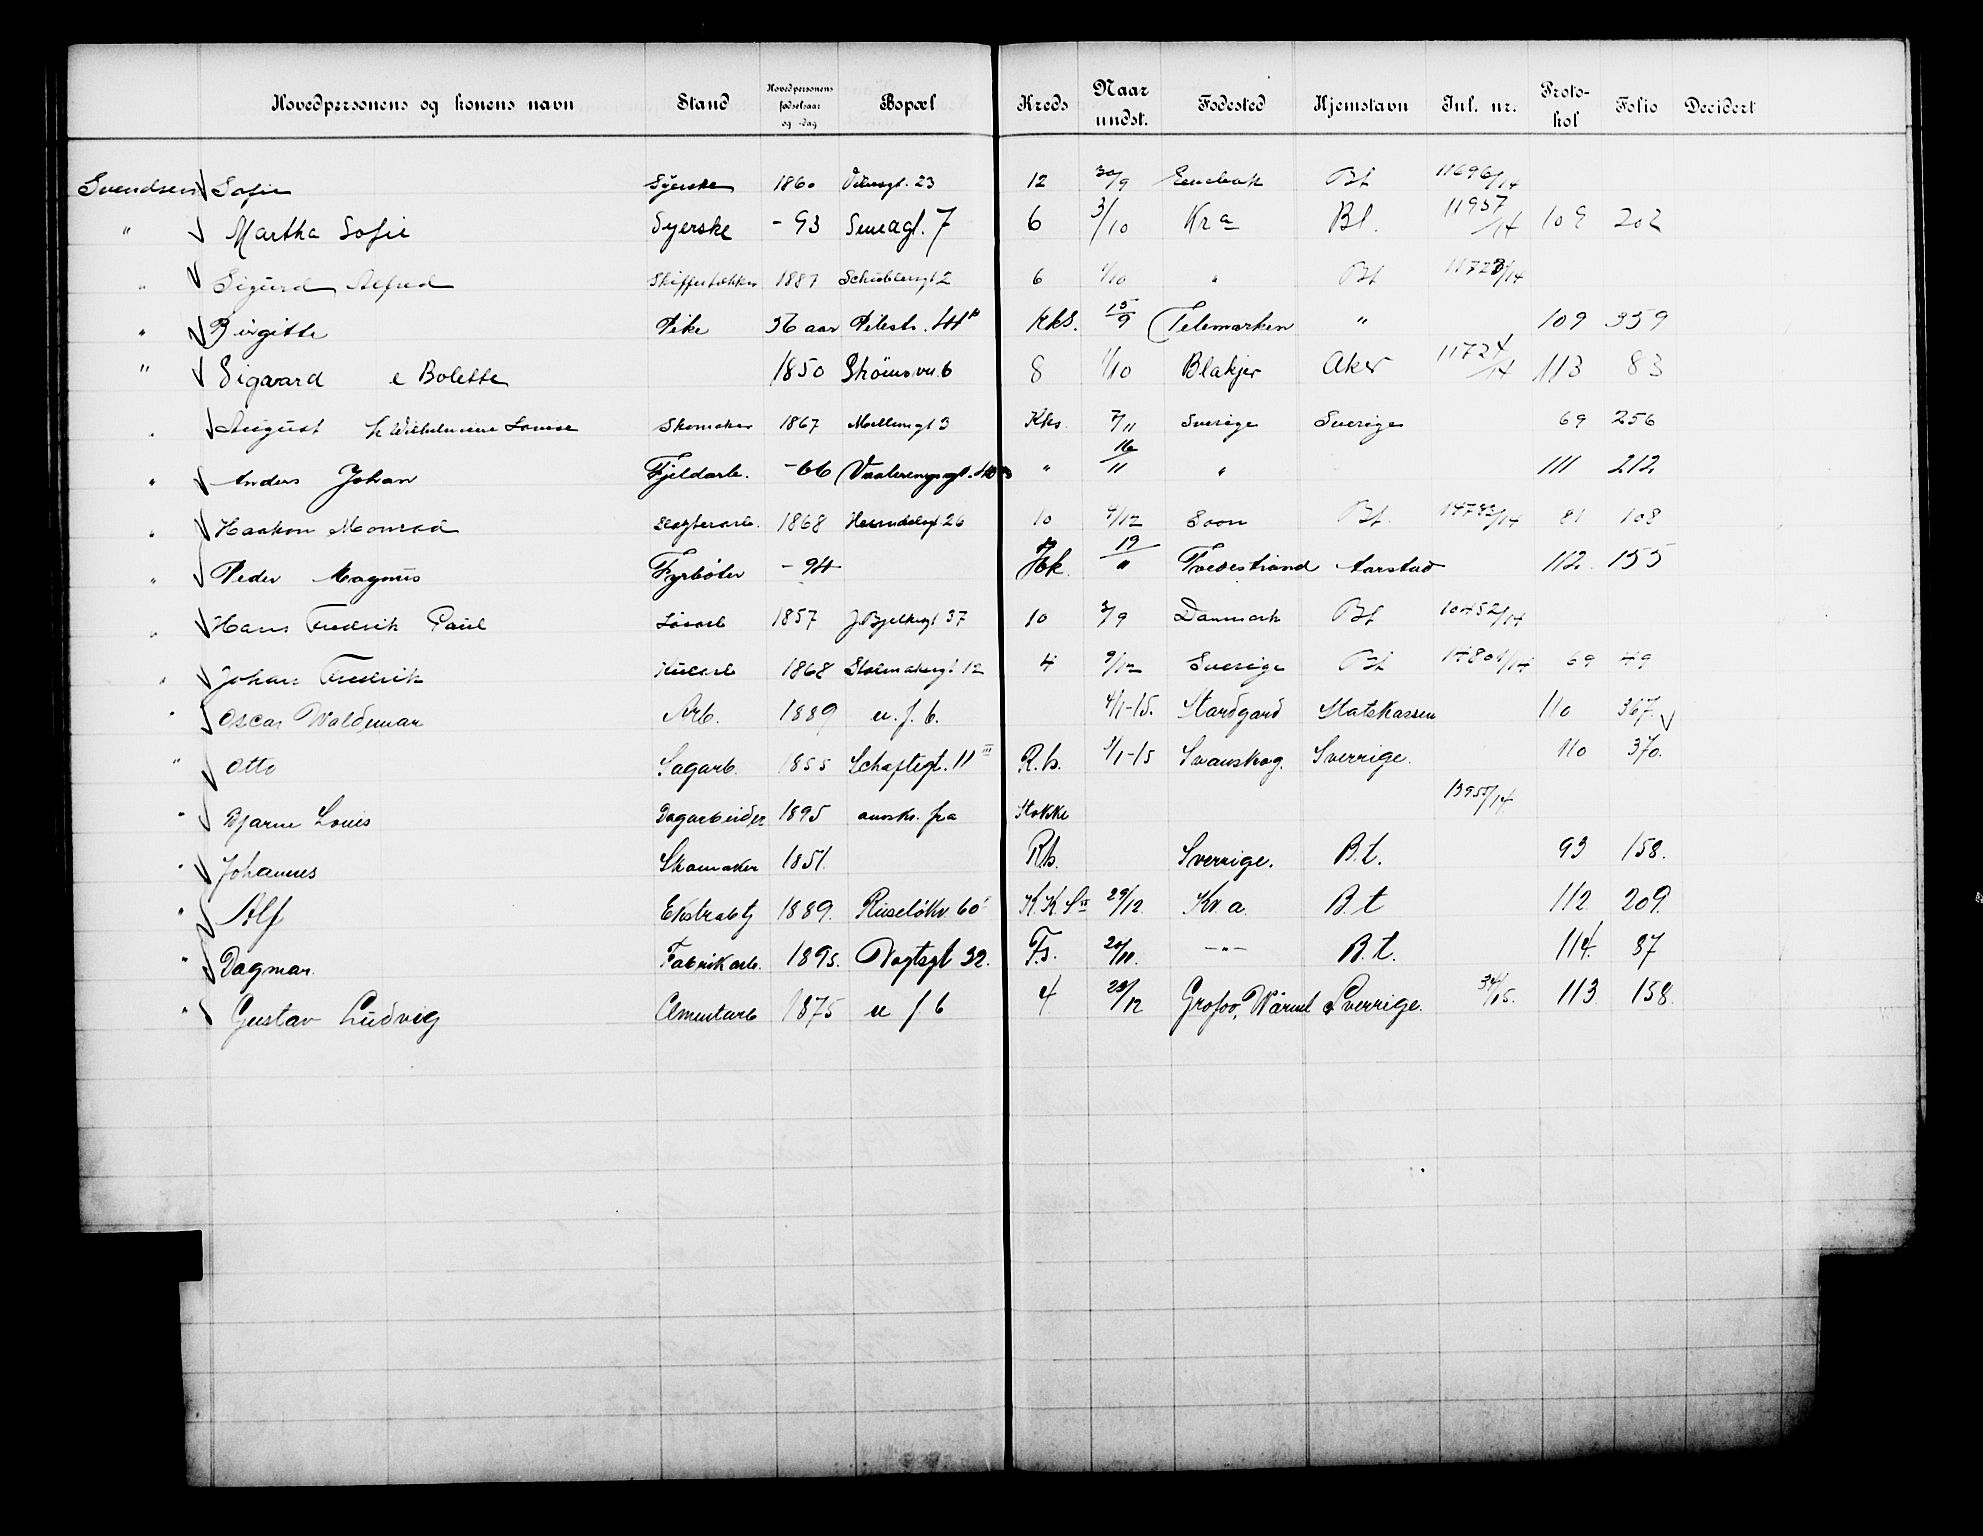 Hovedpersonens og konens navn Stand Hovedpersonens fødselsaar og -dag Bopæl Kreds Naar undst. Fødested Hjemstavn Jnl. nr. Proto-kol Folio Decidert
Svendsen Sofie Syerske 1860 23 12 30/9 Bt 11696/14
" Martha Sofie Syerske -93 7 6 3/10 Kra Bl. 11957/14 109 202
" Sigurd Alfred Skiffertækker 1887 Schüblersgt 2 6 1/10 " Bt 11723/14
" Birgitte Pike 56 aar Pilestr. KkS. 15/9 Telemarken " 109 359
" Sigvard e Bolette 1850 Strømsvn 6 8 1/10 Blakjer Aker 11724/14 113 83
" August h Wilhelmine Lovise Skomaker 1867 Møllergt 3 Kks. 7/11 Sverige Sverige 69 256
" Anders Johan Fjeldarb. -66 Vaalerenggt. " 16/11 " 111 212
" Haakon Monrad Slagterarb. 1868 26 10 4/12 Soon Bt. 14793/14 81 108
" Peder Magnus Fyrbøter -94 19/" Tvedestrand Aarstad 112 155
" Hans Fredrik Paul Løsarb 1857 J Bjelkesgt 37 10 3/9 Danmark Bt 10452/14
" Johan Fredrik Kularb 1868 Stolmakergt 12 4 9/12 Sverige Bt 14801/14 69 49
" Oscar Waldemar Arb. 1889 u. f. b. 4/1-15. Stardgard Statskassen 110 367.
" Otto Sagarb. 1855 Schaftegt. 11 III R.h. 5/1-15 Svanskog. Sverrige. 110 370.
" Bjarne Louis Dagarbeider 1895 ansks. fra Stokke 13955/14
" Johannes Skomaker 1851. R.h. Sverrige. B.t. 93 158.
" Alf Ekstrabtj 1889. Ruseløkv. 60 K.K.S 29/12. Kr.a. B.t 112 209.
" Dagmar. Fabrikarb. 1895. Vogtsgt 32. F.s. 20/11. —"— B.t. 114. 87
" Gustav Ludvig Cementarb 1875 u f b 4 23/12 Värml Sverrige. 34/15. 113. 158.